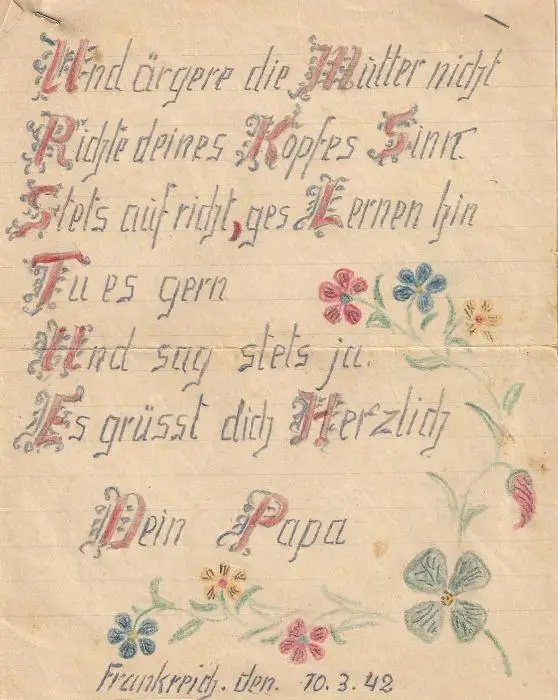 Und ärgere die Mutter nicht
Richte deines Kopfes Sinn.
Stets aufricht,ges Lernen hin
Tu es gern
Und sag stets ja.
Es grüsst dich Herzlich
Dein Papa
Frankreich. den. 10.3.42